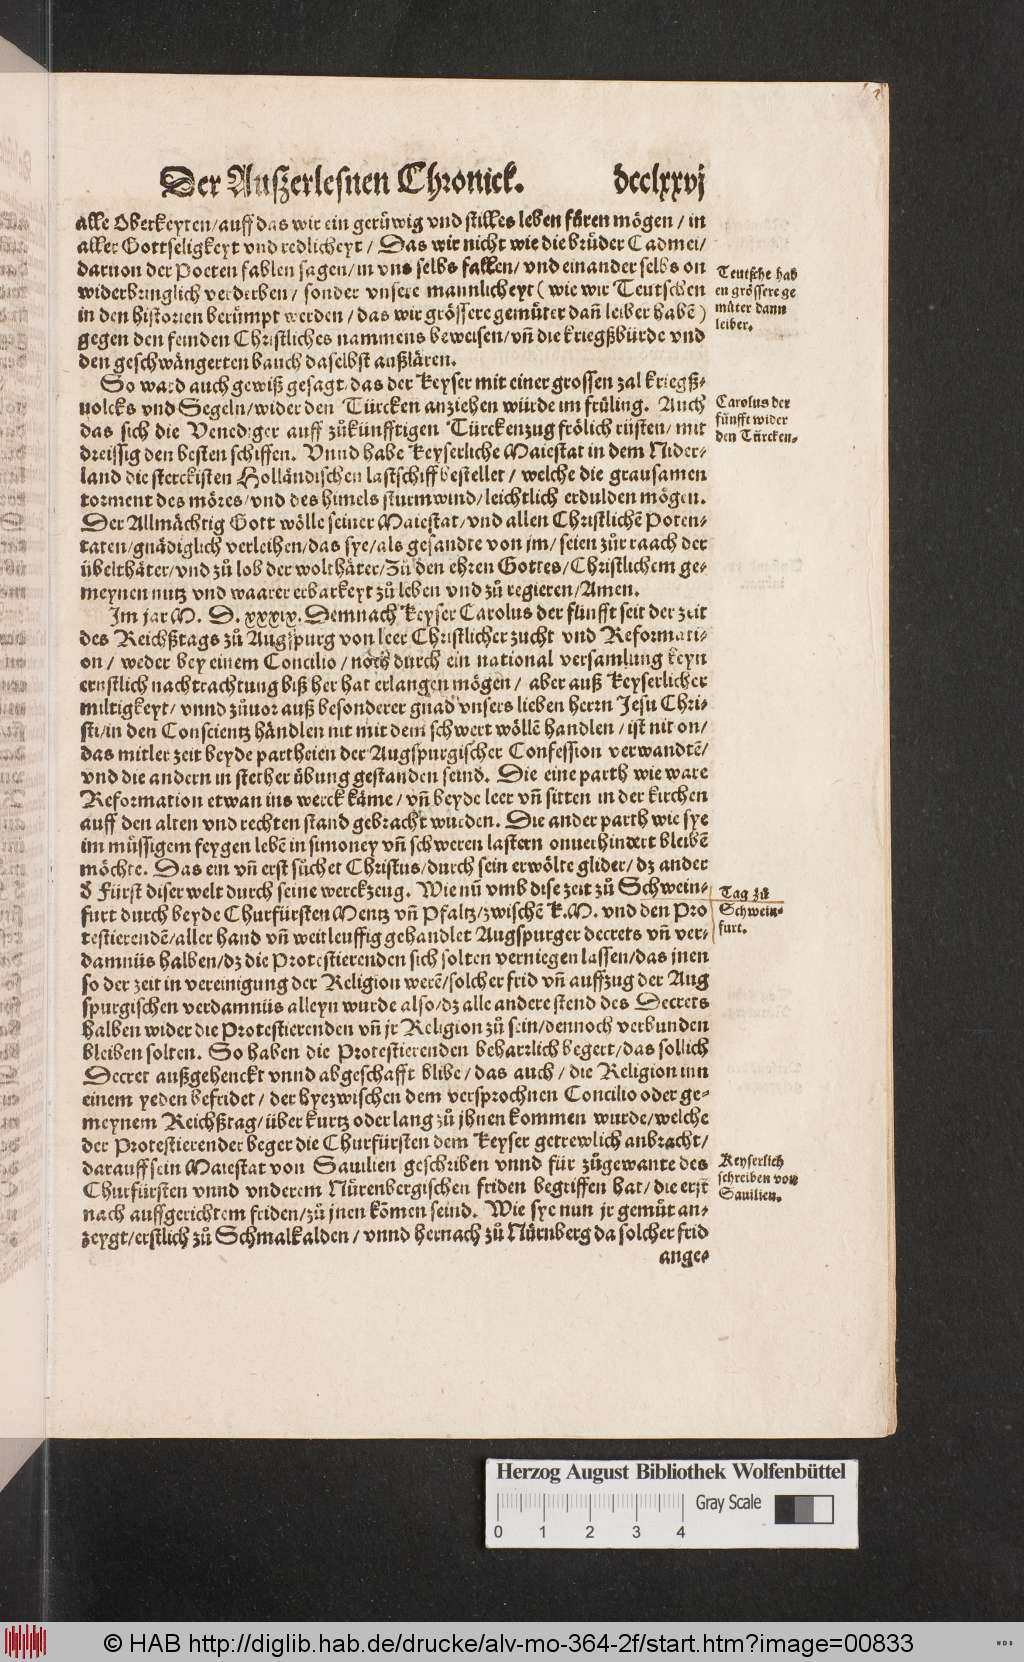 Der Außzerlesnen Chronick. dcclxxvj
alle Oberkeyten/auff das wir ein gerüwig vnd stilles leben füren mögen/in
aller Gottseligkeyt vnd redlicheyt/ Das wir nicht wie die brüder Cadmei/
daruon der Poeten fablen sagen/in vns selbs fallen/vnd einander selbs on
widerbringlich verderben/ sonder vnsere mannlicheyt (wie wir Teutschen
in den historien berümpt werden/das wir grössere gemüter dañ leiber habē)
gegen den feinden Christliches nammens beweisen/vñ die kriegßbürde vnd
den geschwängerten bauch daselbst außlären.
Teutsche hab
en grössere ge
müter dann
leiber.
So ward auch gewiß gesagt/das der Keyser mit einer grossen zal kriegß-
uolcks vnd Segeln/wider den Türcken anziehen würde im früling. Auch
das sich die Venediger auff zůkünfftigen Türckenzug frölich rüsten/mit
dreissig den besten schiffen. Vnnd habe Keyserliche Maiestat in dem Nider-
land die sterckisten Holländischen lastschiff bestellet/ welche die grausamen
torment des möres/vnd des himels sturmwind/leichtlich erdulden mögen.
Der Allmächtig Gott wölle seiner Maiestat/vnd allen Christlichē Poten-
taten/gnädiglich verleihen/das sye/als gesandte von jm/seien zůr raach der
übelthäter/vnd zů lob der wolthäter/Zů den ehren Gottes/Christlichem ge-
meynen nutz vnd waarer erbarkeyt zů leben vnd zů regieren/Amen.
Carolus der
fünfft wider
den Türcken.
Im jar M. D. xxxix. Demnach Keyser Carolus der fünfft seit der zeit
des Reichßtags zů Augspurg von leer Christlicher zucht vnd Reformati-
on/ weder bey einem Concilio/ noch durch ein national versamlung keyn
ernstlich nachtrachtung biß her hat erlangen mögen/ aber auß Keyserlicher
miltigkeyt/ vnnd zůuor auß besonderer gnad vnsers lieben herrn Jesu Chri-
sti/in den Conscientz händlen nit mit dem schwert wöllē handlen/ist nit on/
das mitler zeit beyde partheien der Augspurgischer Confession verwandtē/
vnd die andern in stether übung gestanden seind. Die eine parth wie ware
Reformation etwan ins werck käme/vñ beyde leer vñ sitten in der kirchen
auff den alten vnd rechten stand gebracht wurden. Die ander parth wie sye
im müssigem feygen lebē in simoney vñ schweren lastern onuerhindert bleibē
möchte. Das ein vñ erst sůchet Christus/durch sein erwölte glider/dz ander
d Fürst diser welt durch seine werckzeug. Wie nů vmb dise zeit zů Schwein-
furt durch beyde Churfürsten Mentz vñ Pfaltz/zwischē K.M. vnd den Pro
testierendē/aller hand vñ weitleuffig gehandlet Augspurger decrets vñ ver-
damnüs halben/dz die Protestierenden sich solten verniegen lassen/das jnen
so der zeit in vereinigung der Religion werē/solcher frid vñ auffzug der Aug
spurgischen verdamnüs alleyn wurde also/dz alle andere stend des Decrets
halben wider die Protestierenden vñ jr Religion zů sein/dennoch verbunden
bleiben solten. So haben die Protestierenden beharrlich begert/das sollich
Decret außgehenckt vnnd abgeschafft blibe/das auch/ die Religion inn
einem yeden befridet/ der hyezwischen dem versprochnen Concilio oder ge-
meynem Reichßtag/über kurtz oder lang zů jhnen kommen wurde/welche
der Protestierender beger die Churfürsten dem Keyser getrewlich anbracht/
darauff sein Maiestat von Sauilien geschriben vnnd für zůgewante des
Churfürsten vnnd vnderem Nürenbergischen friden begriffen hat/die erst
nach auffgerichtem friden/zů jnen kōmen seind. Wie sye nun jr gemüt an-
zeygt/erstlich zů Schmalkalden/ vnnd hernach zů Nürnberg da solcher frid
ange-
Tag zů
Schwein-
furt.
Keyserlich
schreiben von
Sauilien.
Herzog August Bibliothek Wolfenbüttel
Gray Scale
0 1 2 3 4
© HAB http://diglib.hab.de/drucke/alv-mo-364-2f/start.htm?image=00833